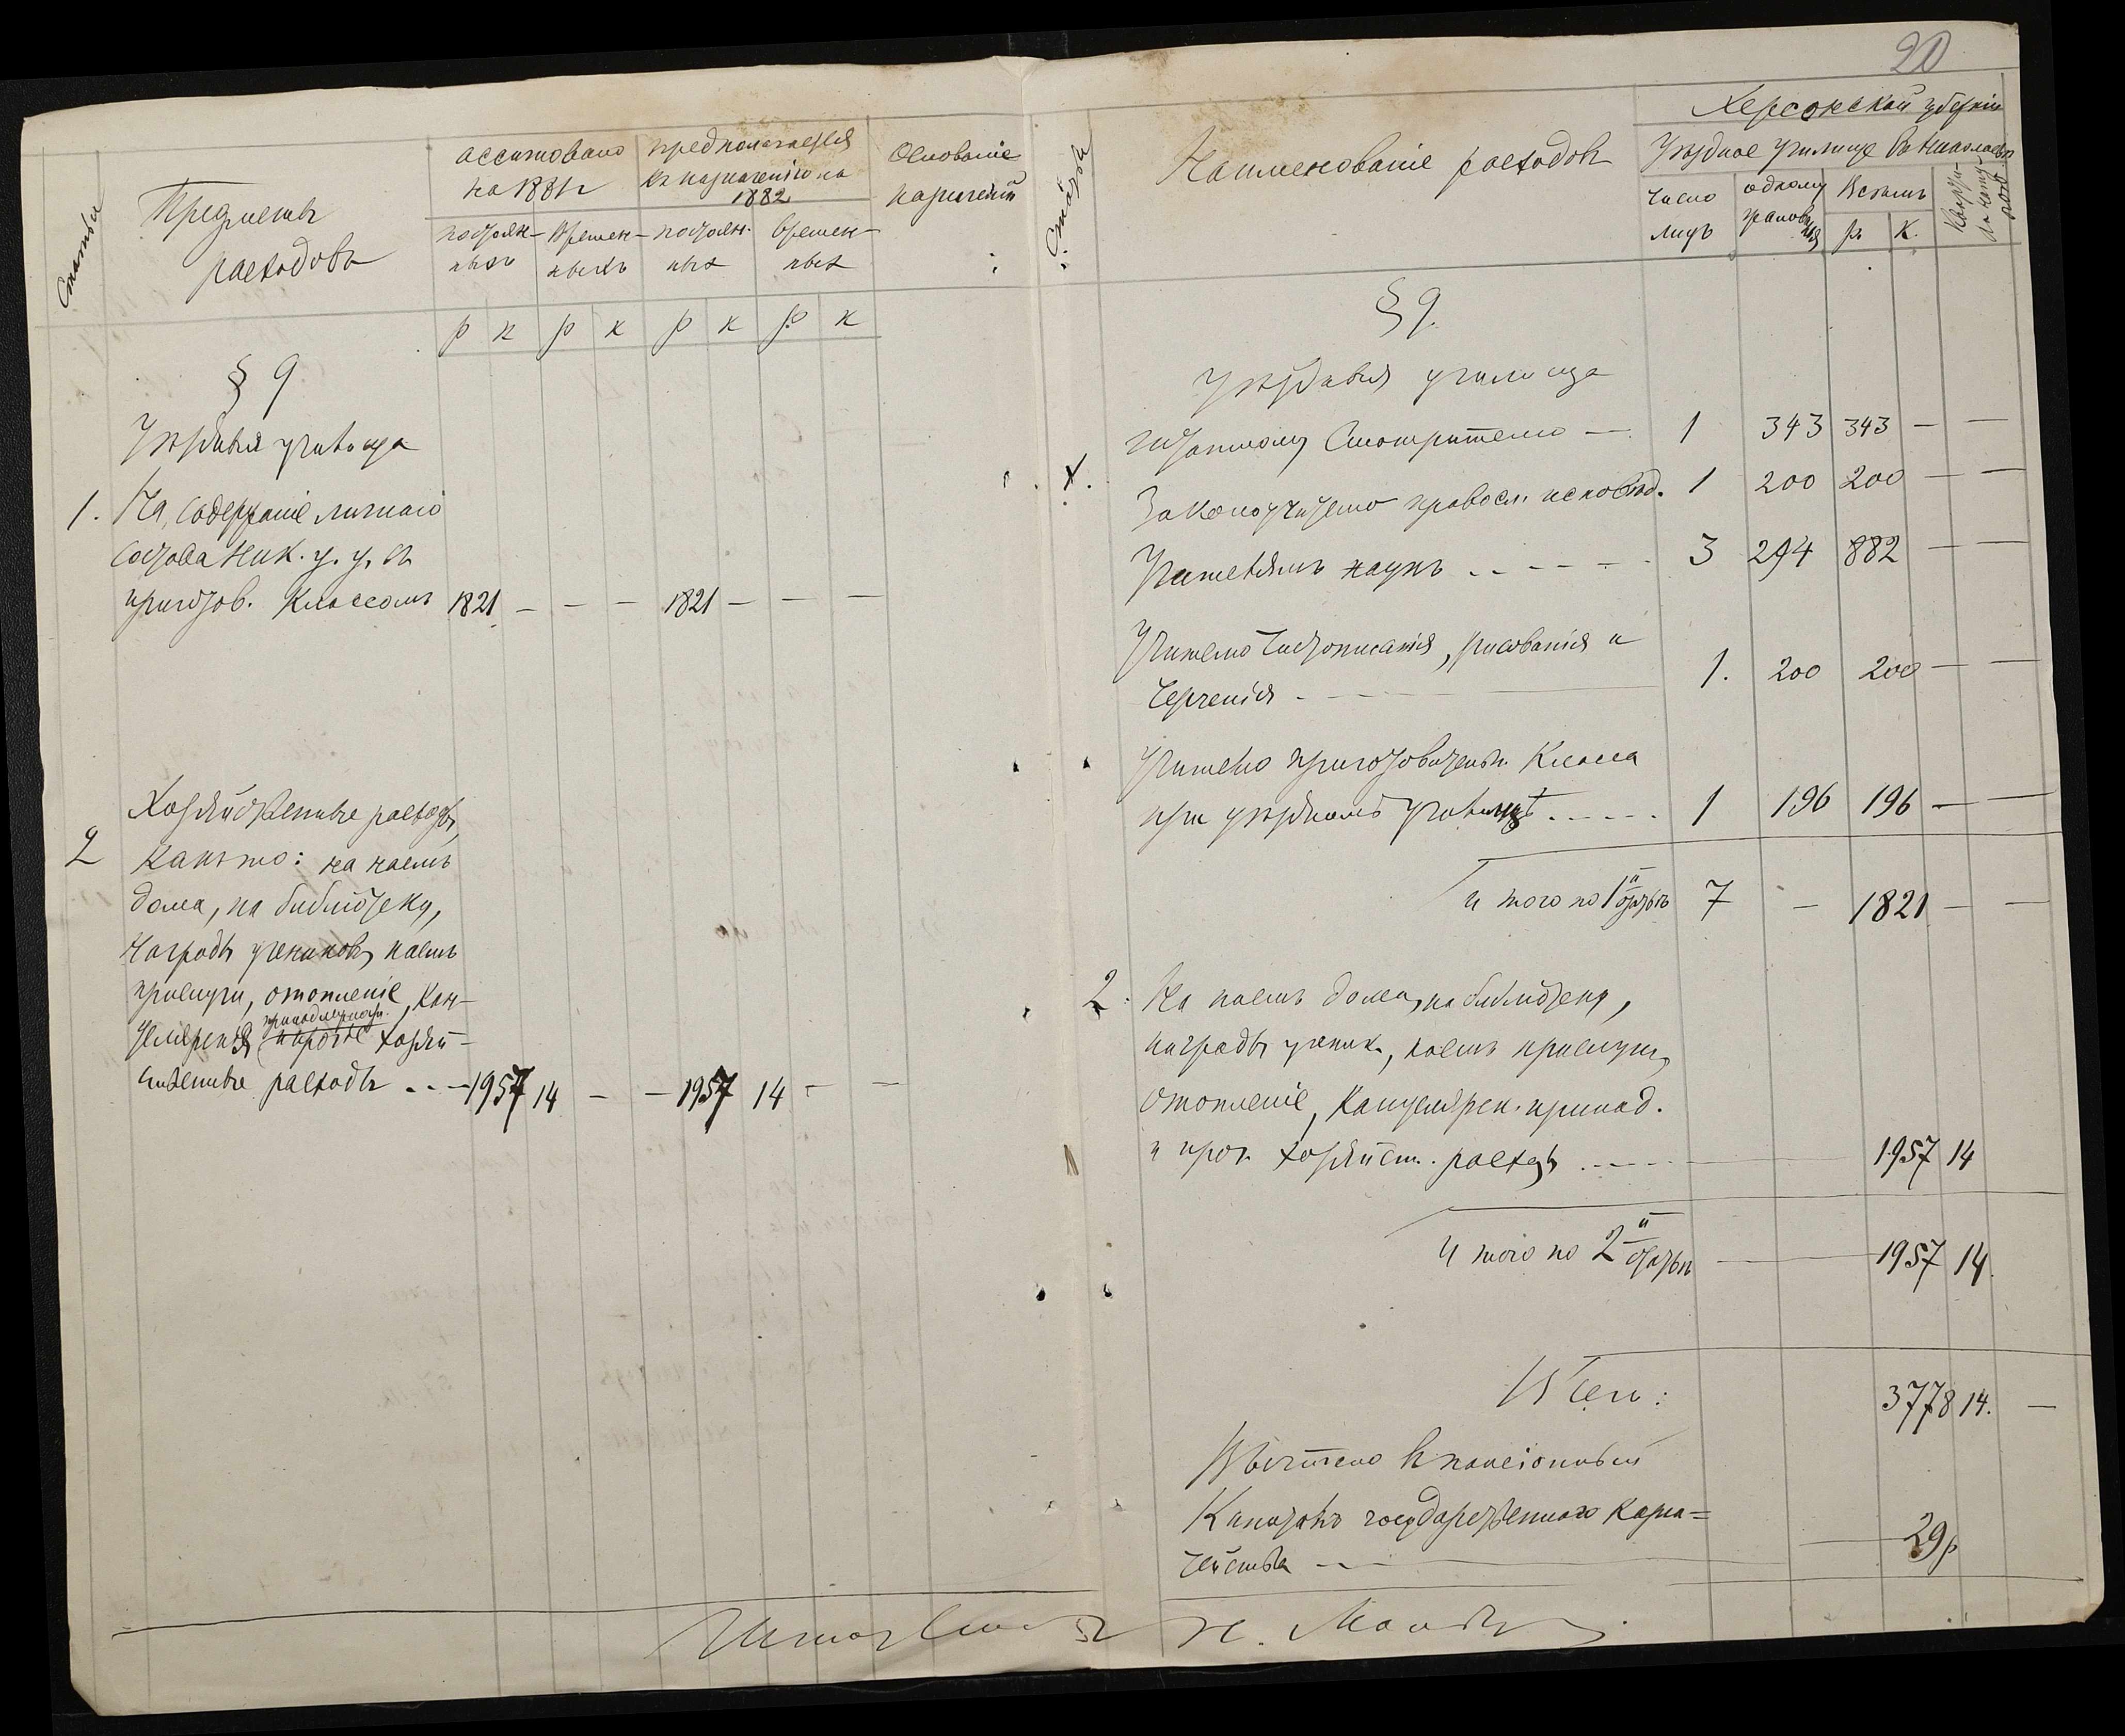 20
Статьи
Предметъ
расходовъ
ассигновано
на 1881 г
предполагается
къ назначенію на
1882
Основаніе
постоян-
ныхъ
времен-
ныхъ
постоян.
ных
времен-
ных
р к р к р к р к
§ 9
Уѣздныя училища
1. На содержаніе личнаго
состава Ник. у. у. съ
приготов. классомъ 1821 — — — 1821 — — —
Хозяйственные расходы,
2 какъ то: на наемъ
дома, на библіотеку,
награды учениковъ, наемъ
прислуги, отопленіе, кан-
принадлежности
целярскія и прочіе хозяй-
ственные расходы . . — 1957 14 — — 1957 14 — —
Статьи
Наименованіе расходовъ
Херсонской губерніи
Уѣздное училище въ Николаевѣ
Число
лицъ
одному
жалованья
Всѣмъ
р. к.
§ 9.
Уѣздныя училища
1. Штатному Смотрителю — 1 343 343 — —
Законоучителю правосл. исповѣд. 1 200 200 — —
Учителямъ наукъ . . — — — 3 294 882 — —
Учителю чистописанія, рисованія и
черченія — 1. 200 200 — —
Учителю приготовительн. класса
при уѣздномъ училищѣ . . . . . 1 196 196 — —
И того по 1й статьѣ 7 — 1821 — —
2. На наемъ дома, на библіотеку,
награды ученик., наемъ прислуги,
отопленіе, канцелярск. принад.
и проч. хозяйст. расходы . . . 1957 14
И того по 2й статьѣ — 1957 14.
Всего:
3778 14. —
Вычтено въ пенсіонный
Капиталъ государственнаго казна=
чейства — — 29 р